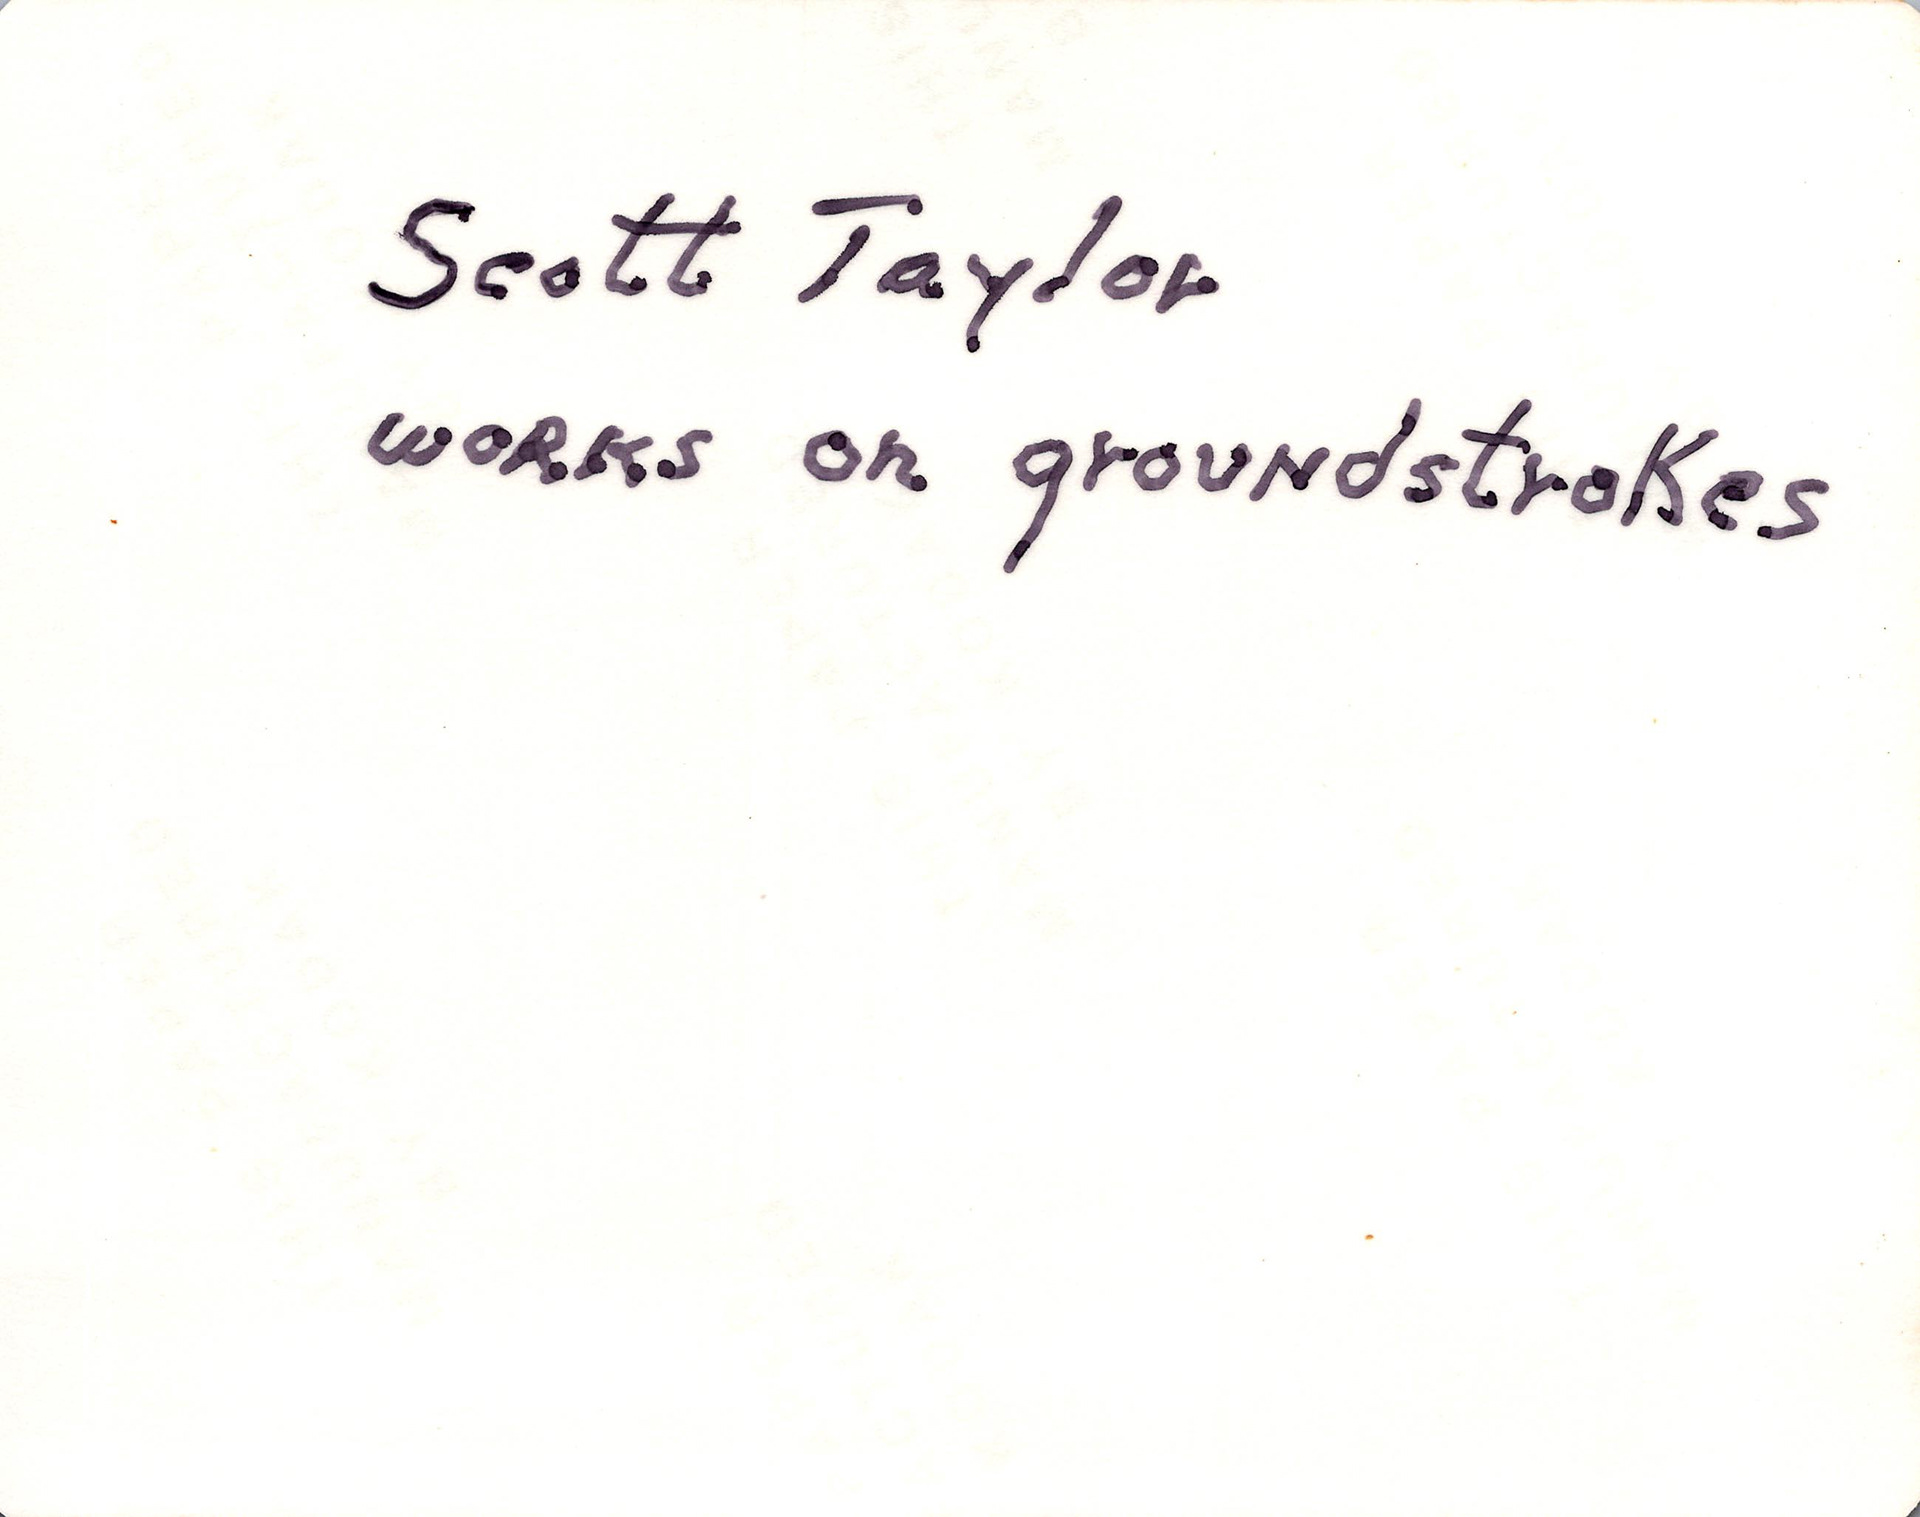 Scott Taylor
works on groundstrokes